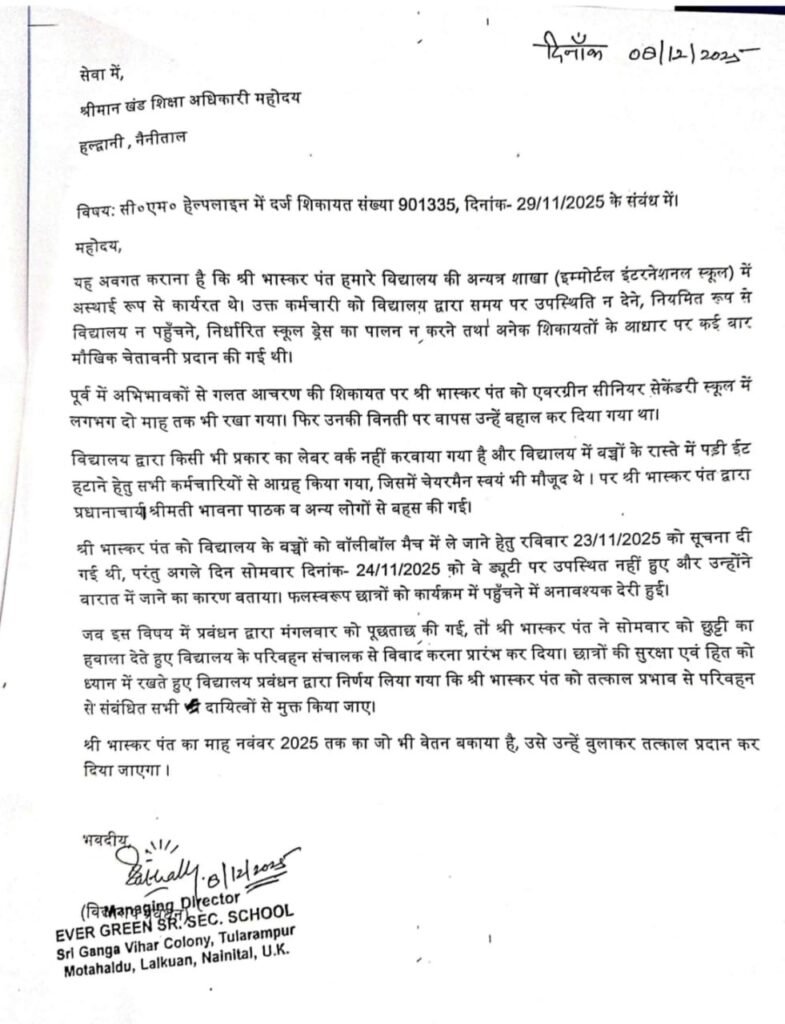 दिनाँक 08/12/2025
सेवा में,
श्रीमान खंड शिक्षा अधिकारी महोदय
हल्द्वानी , नैनीताल
विषय: सी०एम० हेल्पलाइन में दर्ज शिकायत संख्या 901335, दिनांक- 29/11/2025 के संबंध में।
महोदय,
यह अवगत कराना है कि श्री भास्कर पंत हमारे विद्यालय की अन्यत्र शाखा (इम्मोर्टल इंटरनेशनल स्कूल) में
अस्थाई रूप से कार्यरत थे। उक्त कर्मचारी को विद्यालय द्वारा समय पर उपस्थिति न देने, नियमित रूप से
विद्यालय न पहुँचने, निर्धारित स्कूल ड्रेस का पालन न करने तथा अनेक शिकायतों के आधार पर कई बार
मौखिक चेतावनी प्रदान की गई थी।
पूर्व में अभिभावकों से गलत आचरण की शिकायत पर श्री भास्कर पंत को एवरग्रीन सीनियर सेकेंडरी स्कूल में
लगभग दो माह तक भी रखा गया। फिर उनकी विनती पर वापस उन्हें बहाल कर दिया गया था।
विद्यालय द्वारा किसी भी प्रकार का लेबर वर्क नहीं करवाया गया है और विद्यालय में बच्चों के रास्ते में पड़ी ईट
हटाने हेतु सभी कर्मचारियों से आग्रह किया गया, जिसमें चेयरमैन स्वयं भी मौजूद थे । पर श्री भास्कर पंत द्वारा
प्रधानाचार्य श्रीमती भावना पाठक व अन्य लोगों से बहस की गई।
श्री भास्कर पंत को विद्यालय के बच्चों को वॉलीबॉल मैच में ले जाने हेतु रविवार 23/11/2025 को सूचना दी
गई थी, परंतु अगले दिन सोमवार दिनांक- 24/11/2025 को वे ड्यूटी पर उपस्थित नहीं हुए और उन्होंने
बारात में जाने का कारण बताया। फलस्वरूप छात्रों को कार्यक्रम में पहुँचने में अनावश्यक देरी हुई।
जब इस विषय में प्रबंधन द्वारा मंगलवार को पूछताछ की गई, तो श्री भास्कर पंत ने सोमवार को छुट्टी का
हवाला देते हुए विद्यालय के परिवहन संचालक से विवाद करना प्रारंभ कर दिया। छात्रों की सुरक्षा एवं हित को
ध्यान में रखते हुए विद्यालय प्रबंधन द्वारा निर्णय लिया गया कि श्री भास्कर पंत को तत्काल प्रभाव से परिवहन
से संबंधित सभी दायित्वों से मुक्त किया जाए।
श्री भास्कर पंत का माह नवंबर 2025 तक का जो भी वेतन बकाया है, उसे उन्हें बुलाकर तत्काल प्रदान कर
दिया जाएगा ।
भवदीय,
8/12/2025
Managing Director
EVER GREEN SR. SEC. SCHOOL
Sri Ganga Vihar Colony, Tularampur
Motahaldu, Lalkuan, Nainital, U.K.